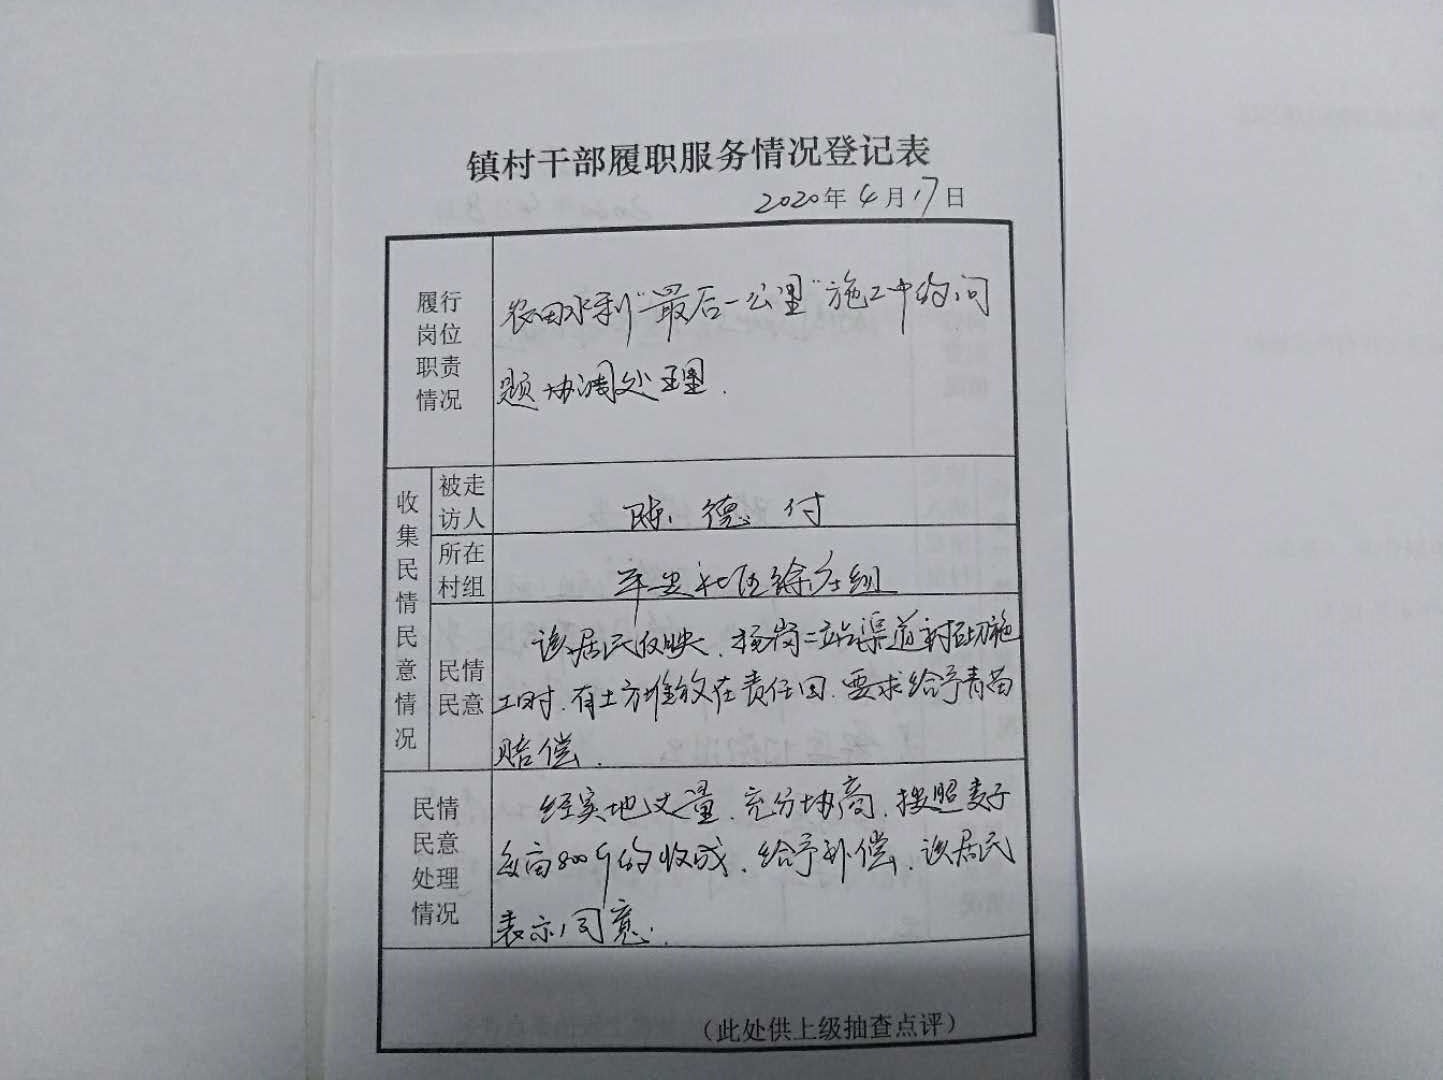 镇村干部履职服务情况登记表
2020年4月17日
履行
岗位
职责
情况
农田水利“最后一公里”施工中的问
题协调处理.
收集民情民意情况
被走
访人
陈德付
所在
村组
平安社区徐庄组
民情
民意
该居民反映、杨岗二站渠道衬砌施
工时、有土方堆放在责任田、要求给予青苗
赔偿.
民情
民意
处理
情况
经实地丈量、充分协商、按照麦子
每亩800斤的收成、给予补偿、该居民
表示同意.
(此处供上级抽查点评)